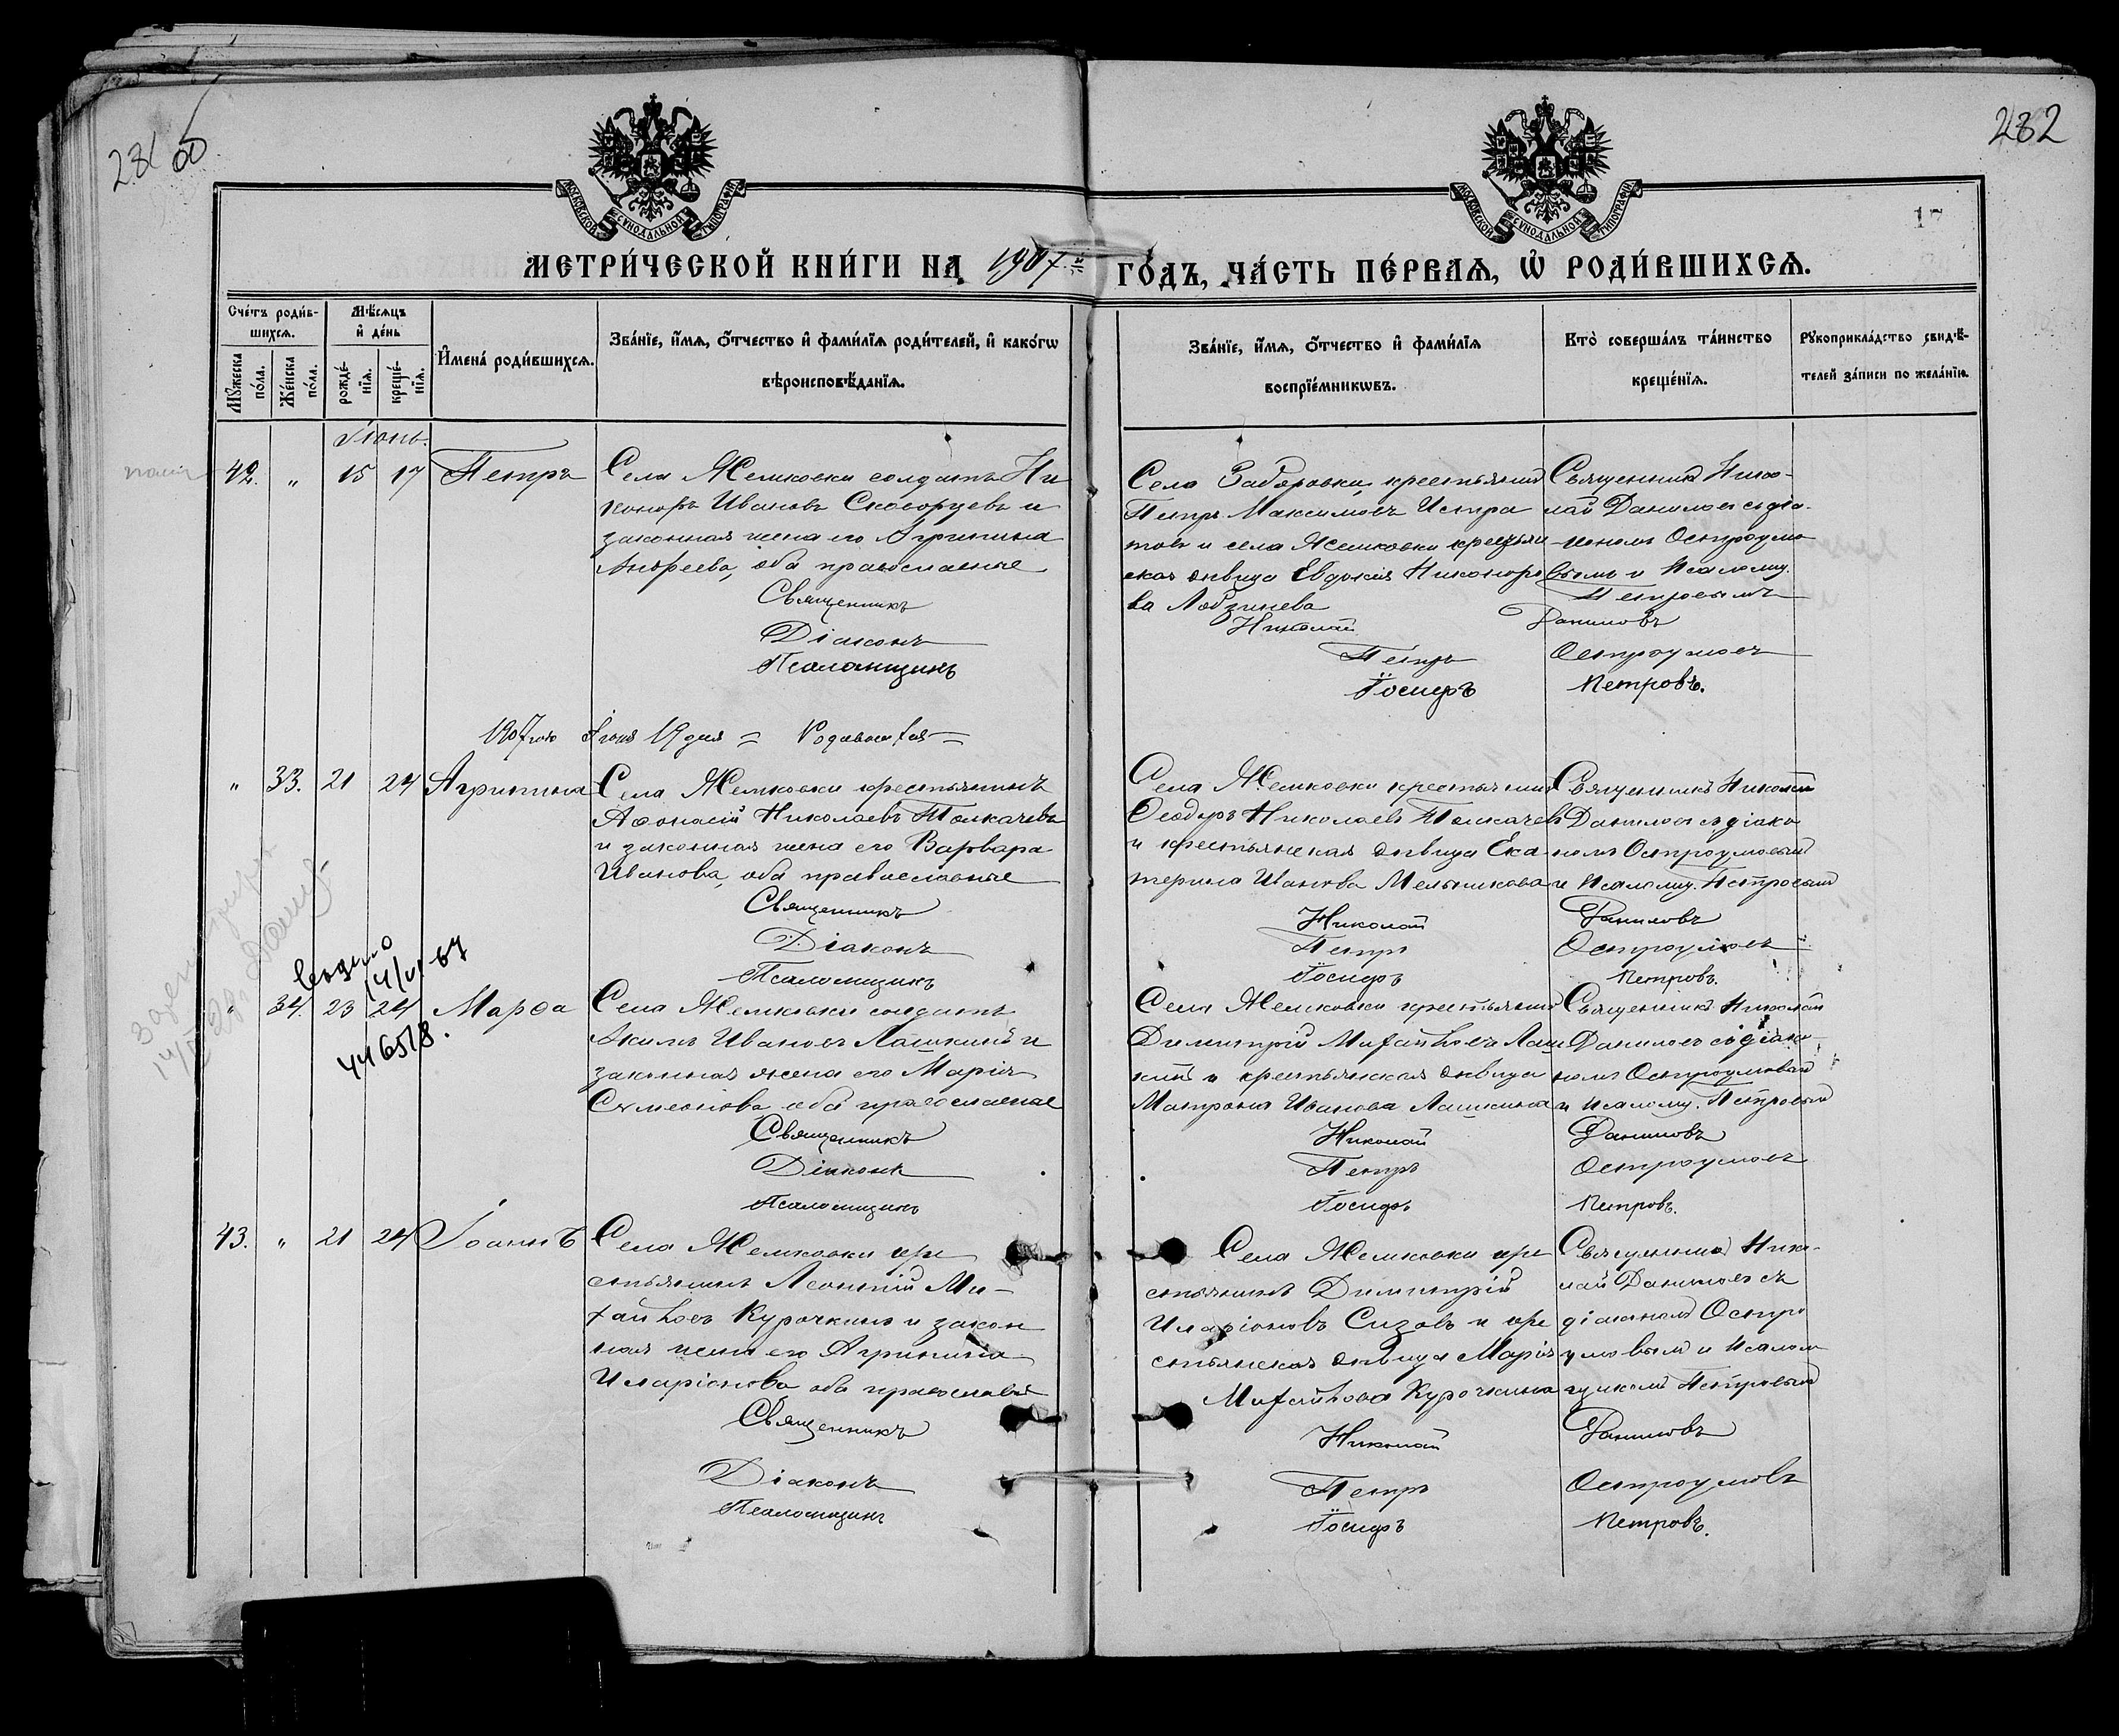 281 об
282
МОСКОВСКОЙ СѴНОДАЛЬНОЙ ТИПОГРАФІИ
МОСКОВСКОЙ СѴНОДАЛЬНОЙ ТИПОГРАФІИ
17
МЕТРИ́ЧЕСКОЙ КНИ́ГИ НА 1907 й ГО́ДЪ, ЧА́СТЬ ПЕ́РВАЯ, Ѡ҆ РОДИ́ВШИХСЯ.
Сче́тъ роди́вшихся.
Мꙋ́жеска по́ла.
Же́нска по́ла.
Мѣ́сяцъ и҆ де́нь
рожде́нїя.
креще́нїя.
И҆мена́ роди́вшихся.
Зва́нїе, и҆́мя, ѻ҆́тчество и҆ фами́лїя роди́телей, и҆ како́гѡ вѣроисповѣ́данїя.
Зва́нїе, и҆́мя, ѻ҆́тчество и҆ фами́лїя воспрїе́мникѡвъ.
Кто̀ соверша́лъ та́инство креще́нїя.
Рꙋкоприкла́дство свидѣ́телей за́писи по жела́нїю.
Іюнь.
42. " 15 17 Петръ
Села Жемковки солдатъ Ни
каноръ Ивановъ Скворцевъ и
законная жена его Агрипина
Андреева, оба православные
Священникъ
Діаконъ
Псаломщикъ
Села Заборовки крестьянинъ
Петръ Максимовъ Истра
товъ и села Жемковки крестьян
ская дѣвица Евдокія Никаноро
ва Лобзинева
Священникъ Нико-
лай Даниловъ съ діа-
кономъ Остроумо
вымъ и псаломщ.
Петровымъ
Николай Даниловъ
Петръ Остроумовъ
Іосифъ Петровъ.
1907 года Іюня 19 дня
" 33. 21 24 Агрипина
Села Жемковки крестьянинъ
Аѳонасій Николаевъ Толкачевъ
и законная жена его Варвара
Иванова, оба православные
Священникъ
Діаконъ
Псаломщикъ
Села Жемковки крестьянинъ
Ѳеодоръ Николаевъ Толкачевъ
и крестьянская дѣвица Ека
терина Иванова Мельникова
Священникъ Николай
Даниловъ съ діако
номъ Остроумовымъ
и псаломщ. Петровымъ
Николай Даниловъ
Петръ Остроумовъ
Іосифъ Петровъ.
14/VI 67
446518.
" 34. 23 24 Марѳа
Села Жемковки солдатъ
Акимъ Ивановъ Лашкинъ и
законная жена его Марія
Сѵмеонова оба православные
Священникъ
Діаконъ
Псаломщикъ
Села Жемковки крестьянинъ
Димитрій Михайловъ Лаш
кинъ и крестьянская дѣвица
Матрона Иванова Лашкина
Священникъ Николай
Даниловъ съ діако
номъ Остроумовымъ
и псаломщ. Петровымъ
Николай Даниловъ
Петръ Остроумовъ
Іосифъ Петровъ.
43. " 21 24 Іоаннъ
Села Жемковки кре
стьянинъ Леонтій Ми-
хайловъ Курочкинъ и закон
ная жена его Агрипина
Иларіонова оба православн
Священникъ
Діаконъ
Псаломщикъ
Села Жемковки кре
стьянинъ Димитрій
Иларіоновъ Сизовъ и кре
стьянская дѣвица Марія
Михайлова Курочкина
Священникъ Нико-
лай Даниловъ съ
діакономъ Остро
умовымъ и псалом
щикомъ Петровымъ
Николай Даниловъ
Петръ Остроумовъ
Іосифъ Петровъ.